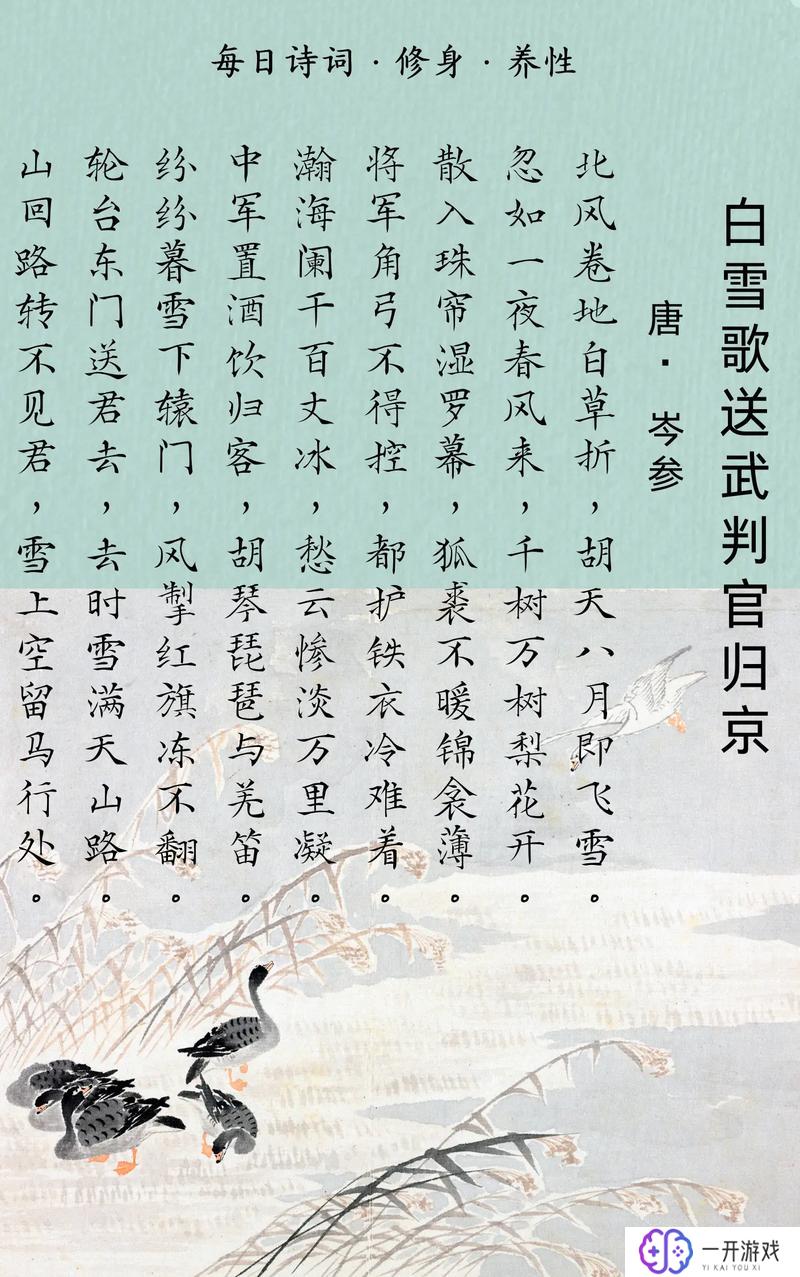 每日诗词·修身·养性
白雪歌送武判官归京
唐·岑参
北风卷地白草折，胡天八月即飞雪。
忽如一夜春风来，千树万树梨花开。
散入珠帘湿罗幕，狐裘不暖锦衾薄。
将军角弓不得控，都护铁衣冷难着。
瀚海阑干百丈冰，愁云惨淡万里凝。
中军置酒饮归客，胡琴琵琶与羌笛。
纷纷暮雪下辕门，风掣红旗冻不翻。
轮台东门送君去，去时雪满天山路。
山回路转不见君，雪上空留马行处。
一开游戏
YI KAI YOU XI